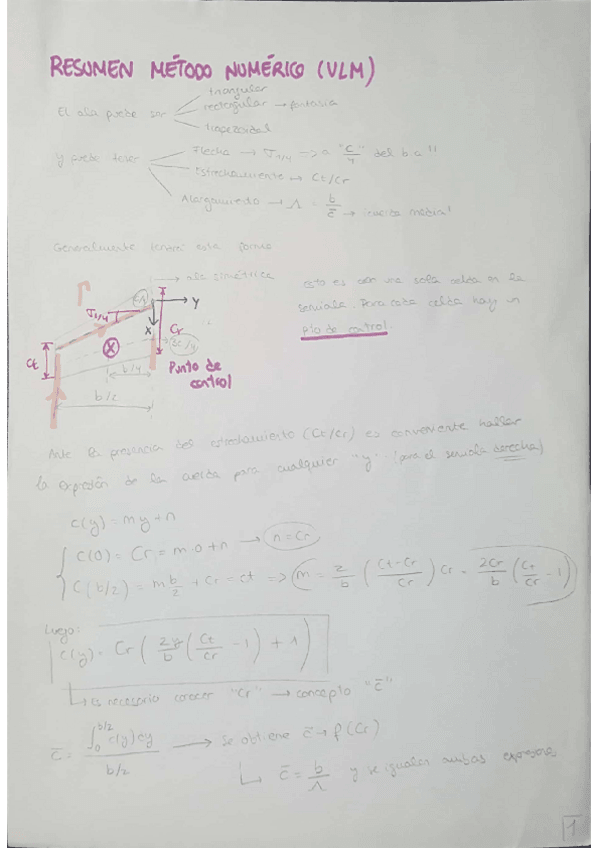 RESUMEN MÉTODO NUMÉRICO (VLM)
El ala puede ser
triangular
rectangular → fantasía
trapezoidal
y puede tener
Flecha → J1/4 → a "c/4" del b.a"
Estrechamiento → Ct/Cr
Alargamiento → Λ = b/c̄ → ¡cuerda media!
Generalmente tendrá esta forma
ala simétrica
Y
X
J1/4
Cr
Ct
3c/4
b/4
b/2
Punto de control
esto es con una sola celda en la
semiala. Para cada celda hay un
pto de control.
Ante la presencia del estrechamiento (Ct/Cr) es conveniente hallar
la expresión de la cuerda para cualquier "y" (para el semiala derecha)
c(y) = my + n
c(0) = Cr = m·0 + n → n = Cr
C(b/2) = m b/2 + Cr = ct => m = 2/b (Ct-Cr/Cr) Cr = 2Cr/b (Ct/Cr - 1)
Luego:
c(y) = Cr (2y/b (Ct/Cr - 1) + 1)
↳ es necesario conocer "Cr" → concepto "c̄"
c̄ = ∫0^b/2 c(y)dy / b/2 → se obtiene c̄ → f(Cr)
↳ c̄ = b/Λ y se igualan ambas expresiones
1